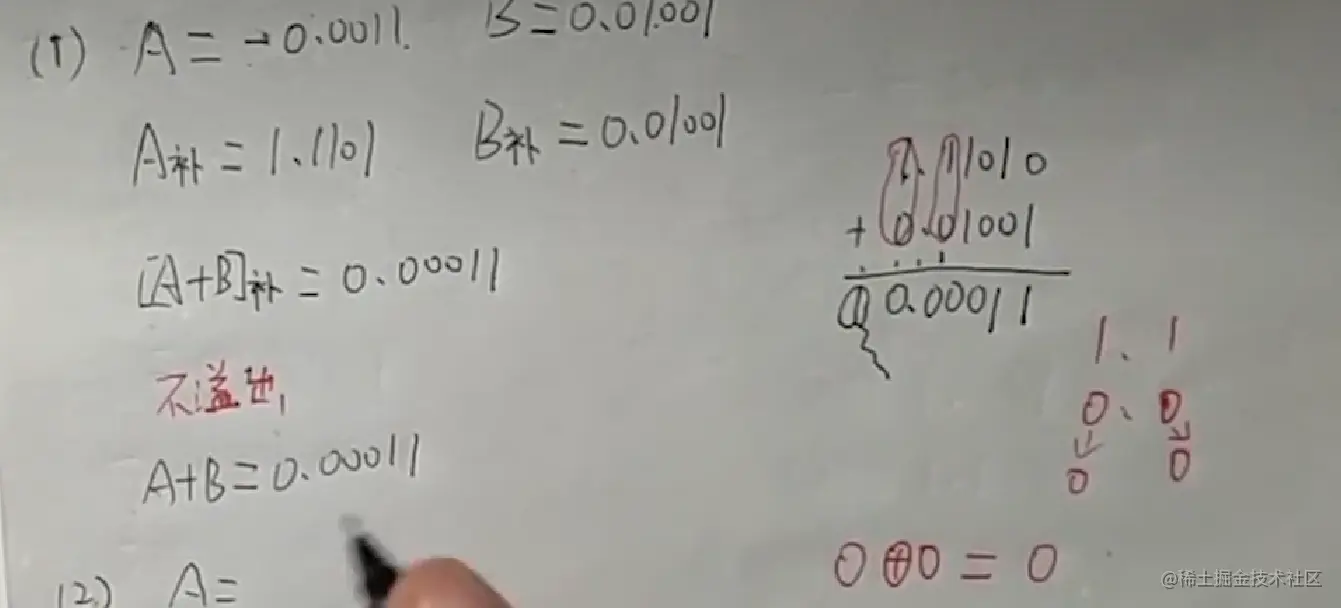 (1) A = -0.0011. B = 0.01001
A补 = 1.1101 B补 = 0.01001
1.11010
+ 0.01001
[A+B]补 = 0.00011
① 0.00011
1、1
不溢出,
0、0
A+B = 0.00011
0 0
(2) A =
0⊕0 = 0
@稀土掘金技术社区